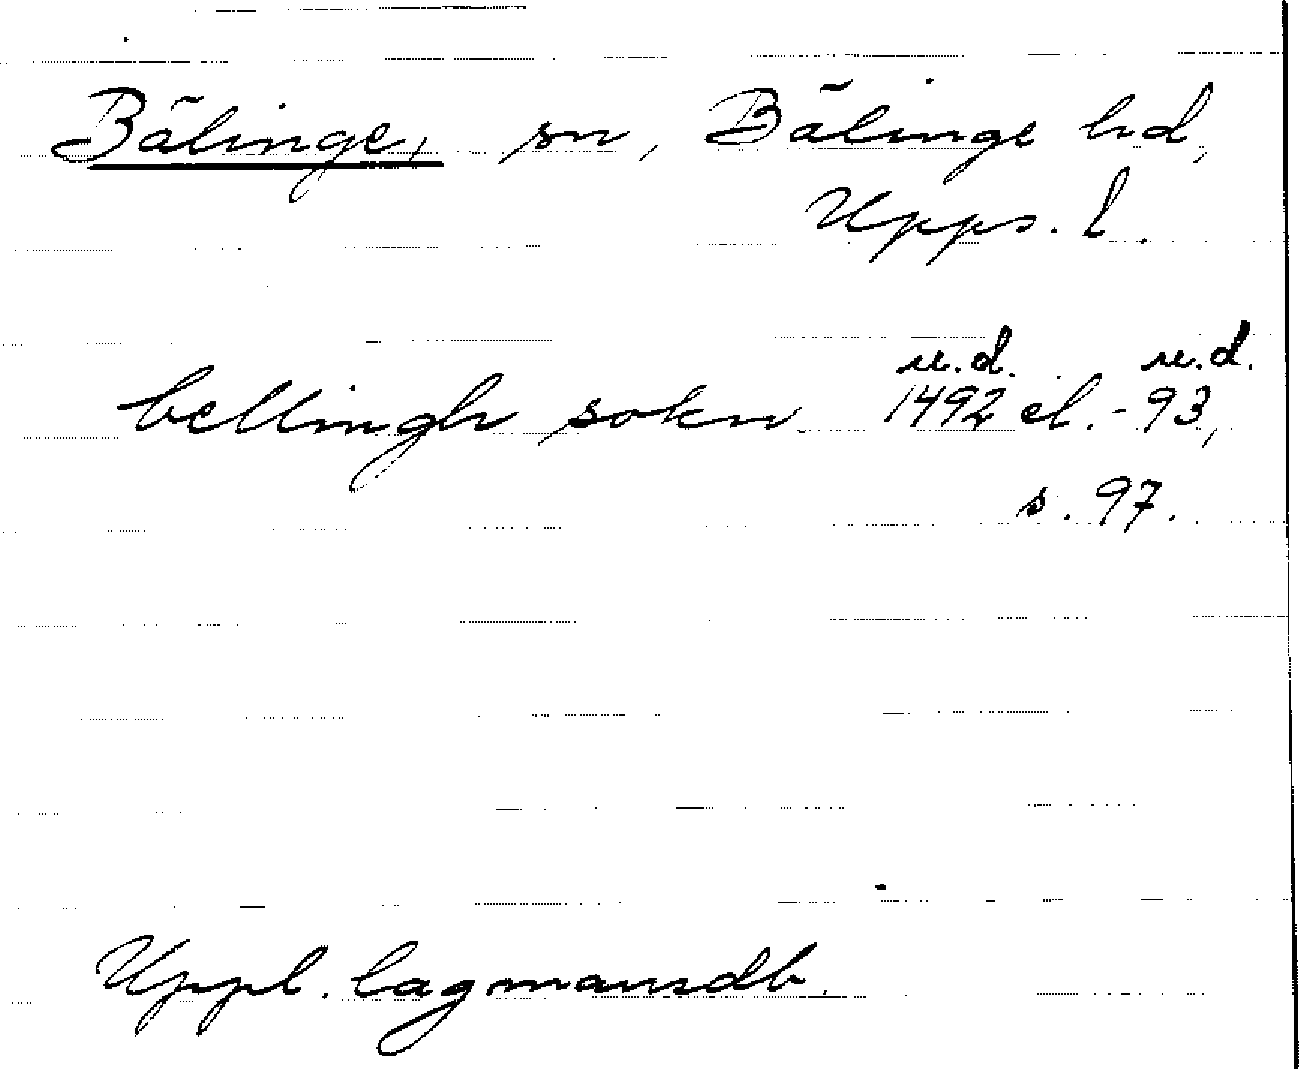 Bälinge, sn, Bälinge hd,
Upps. l.
u.d. u.d.
bellingh sokn 1492 el. -93,
s. 97.
Uppl. lagmansdb.